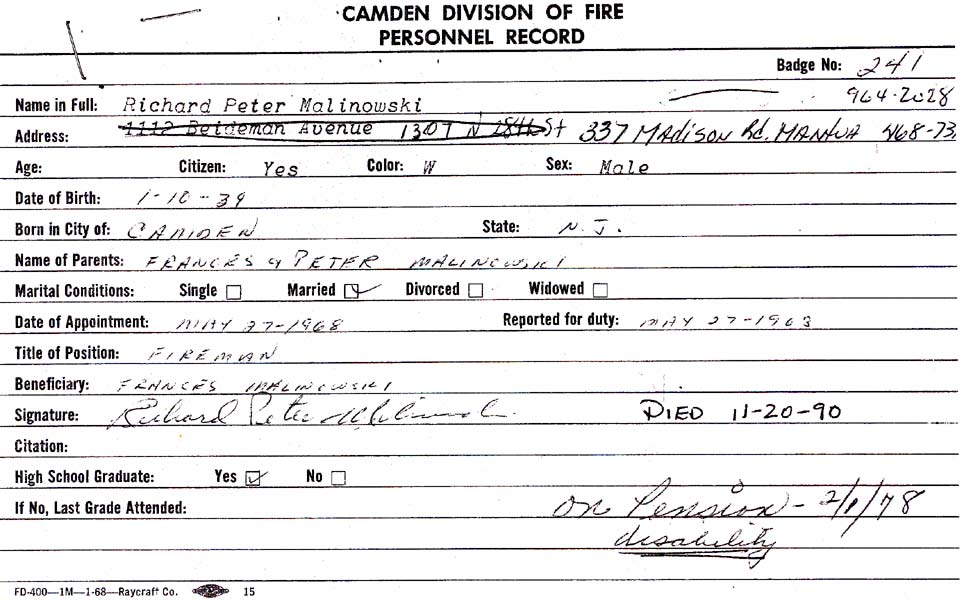 CAMDEN DIVISION OF FIRE
PERSONNEL RECORD
Badge No: 241
964-2028
Name in Full: Richard Peter Malinowski
Address: 1112 Beideman Avenue 1307 N 18th St 337 MADISON Rd. MANTUA 468-73
Age: Citizen: Yes Color: W Sex: Male
Date of Birth: 1-10-39
Born in City of: CAMDEN State: N.J.
Name of Parents: FRANCES & PETER MALINOWSKI
Marital Conditions: Single Married Divorced Widowed
Date of Appointment: MAY 27-1968 Reported for duty: MAY 27-1963
Title of Position: FIREMAN
Beneficiary: FRANCES MALINOWSKI
Signature: Richard Peter Malinowski DIED 11-20-90
Citation:
High School Graduate: Yes No
If No, Last Grade Attended: on Pension - 2/1/78
disability
FD-400—1M—1-68—Raycraft Co. 15